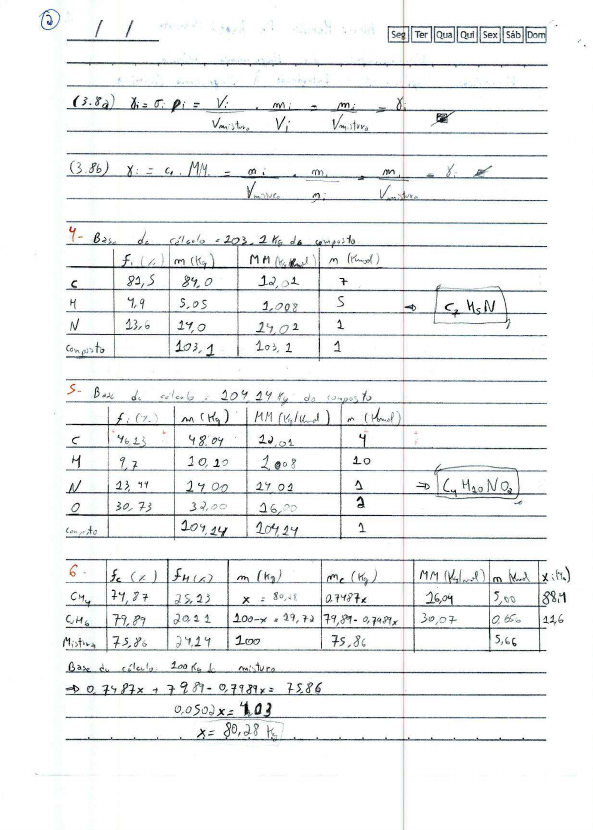 2
/ /
Seg Ter Qua Qui Sex Sáb Dom
(3.8a) γi = σi ρi = Vi / Vmistura · mi / Vi = mi / Vmistura = γi
(3.8b) γi = ci · MMi = ni / Vmistura · mi / ni = mi / Vmistura = γi
4- Base de cálculo = 103,1 Kg do composto
fi (%) m (Kg) MM (Kg/Kmol) n (Kmol)
C 81,5 84,0 12,01 7
H 4,9 5,05 1,008 5
⇒ C7H5N
N 13,6 14,0 14,01 1
Composto 103,1 103,1 1
5- Base de cálculo : 104,14 Kg do composto
fi (%) m (Kg) MM (Kg/Kmol) n (Kmol)
C 46,13 48,04 12,01 4
H 9,7 10,10 1,008 10
N 13,44 14,00 14,01 1 ⇒ C4H10NO2
O 30,73 32,00 16,00 2
Composto 104,14 104,14 1
6- fc (%) fH (%) m (Kg) mc (Kg) MM (Kg/Kmol) n (Kmol)
CH4 74,87 25,13 x = 80,28 0,7487x 16,04 5,00 88,4
C2H6 79,89 20,11 100-x = 19,72 79,89 - 0,7989x 30,07 11,6
Mistura 75,86 24,14 100 75,86 5,66
Base de cálculo: 100 Kg de mistura
⇒ 0,7487x + 79,89 - 0,7989x = 75,86
0,0502x = 4,03
x = 80,28 Kg